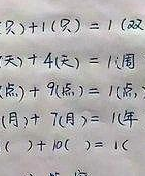 (只)+1(只) = 1(双
(天) + 4(天) = 1(周
(点) + 9(点) = 1(点
(月) + 7(月) = 1(年
( ) + 10( ) = 1(